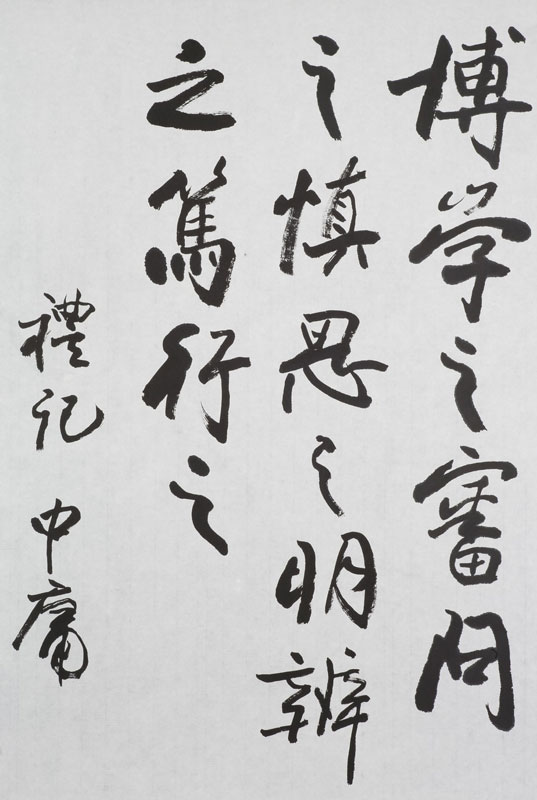 博学之審問
之慎思之明辨
之篤行之
禮記 中庸